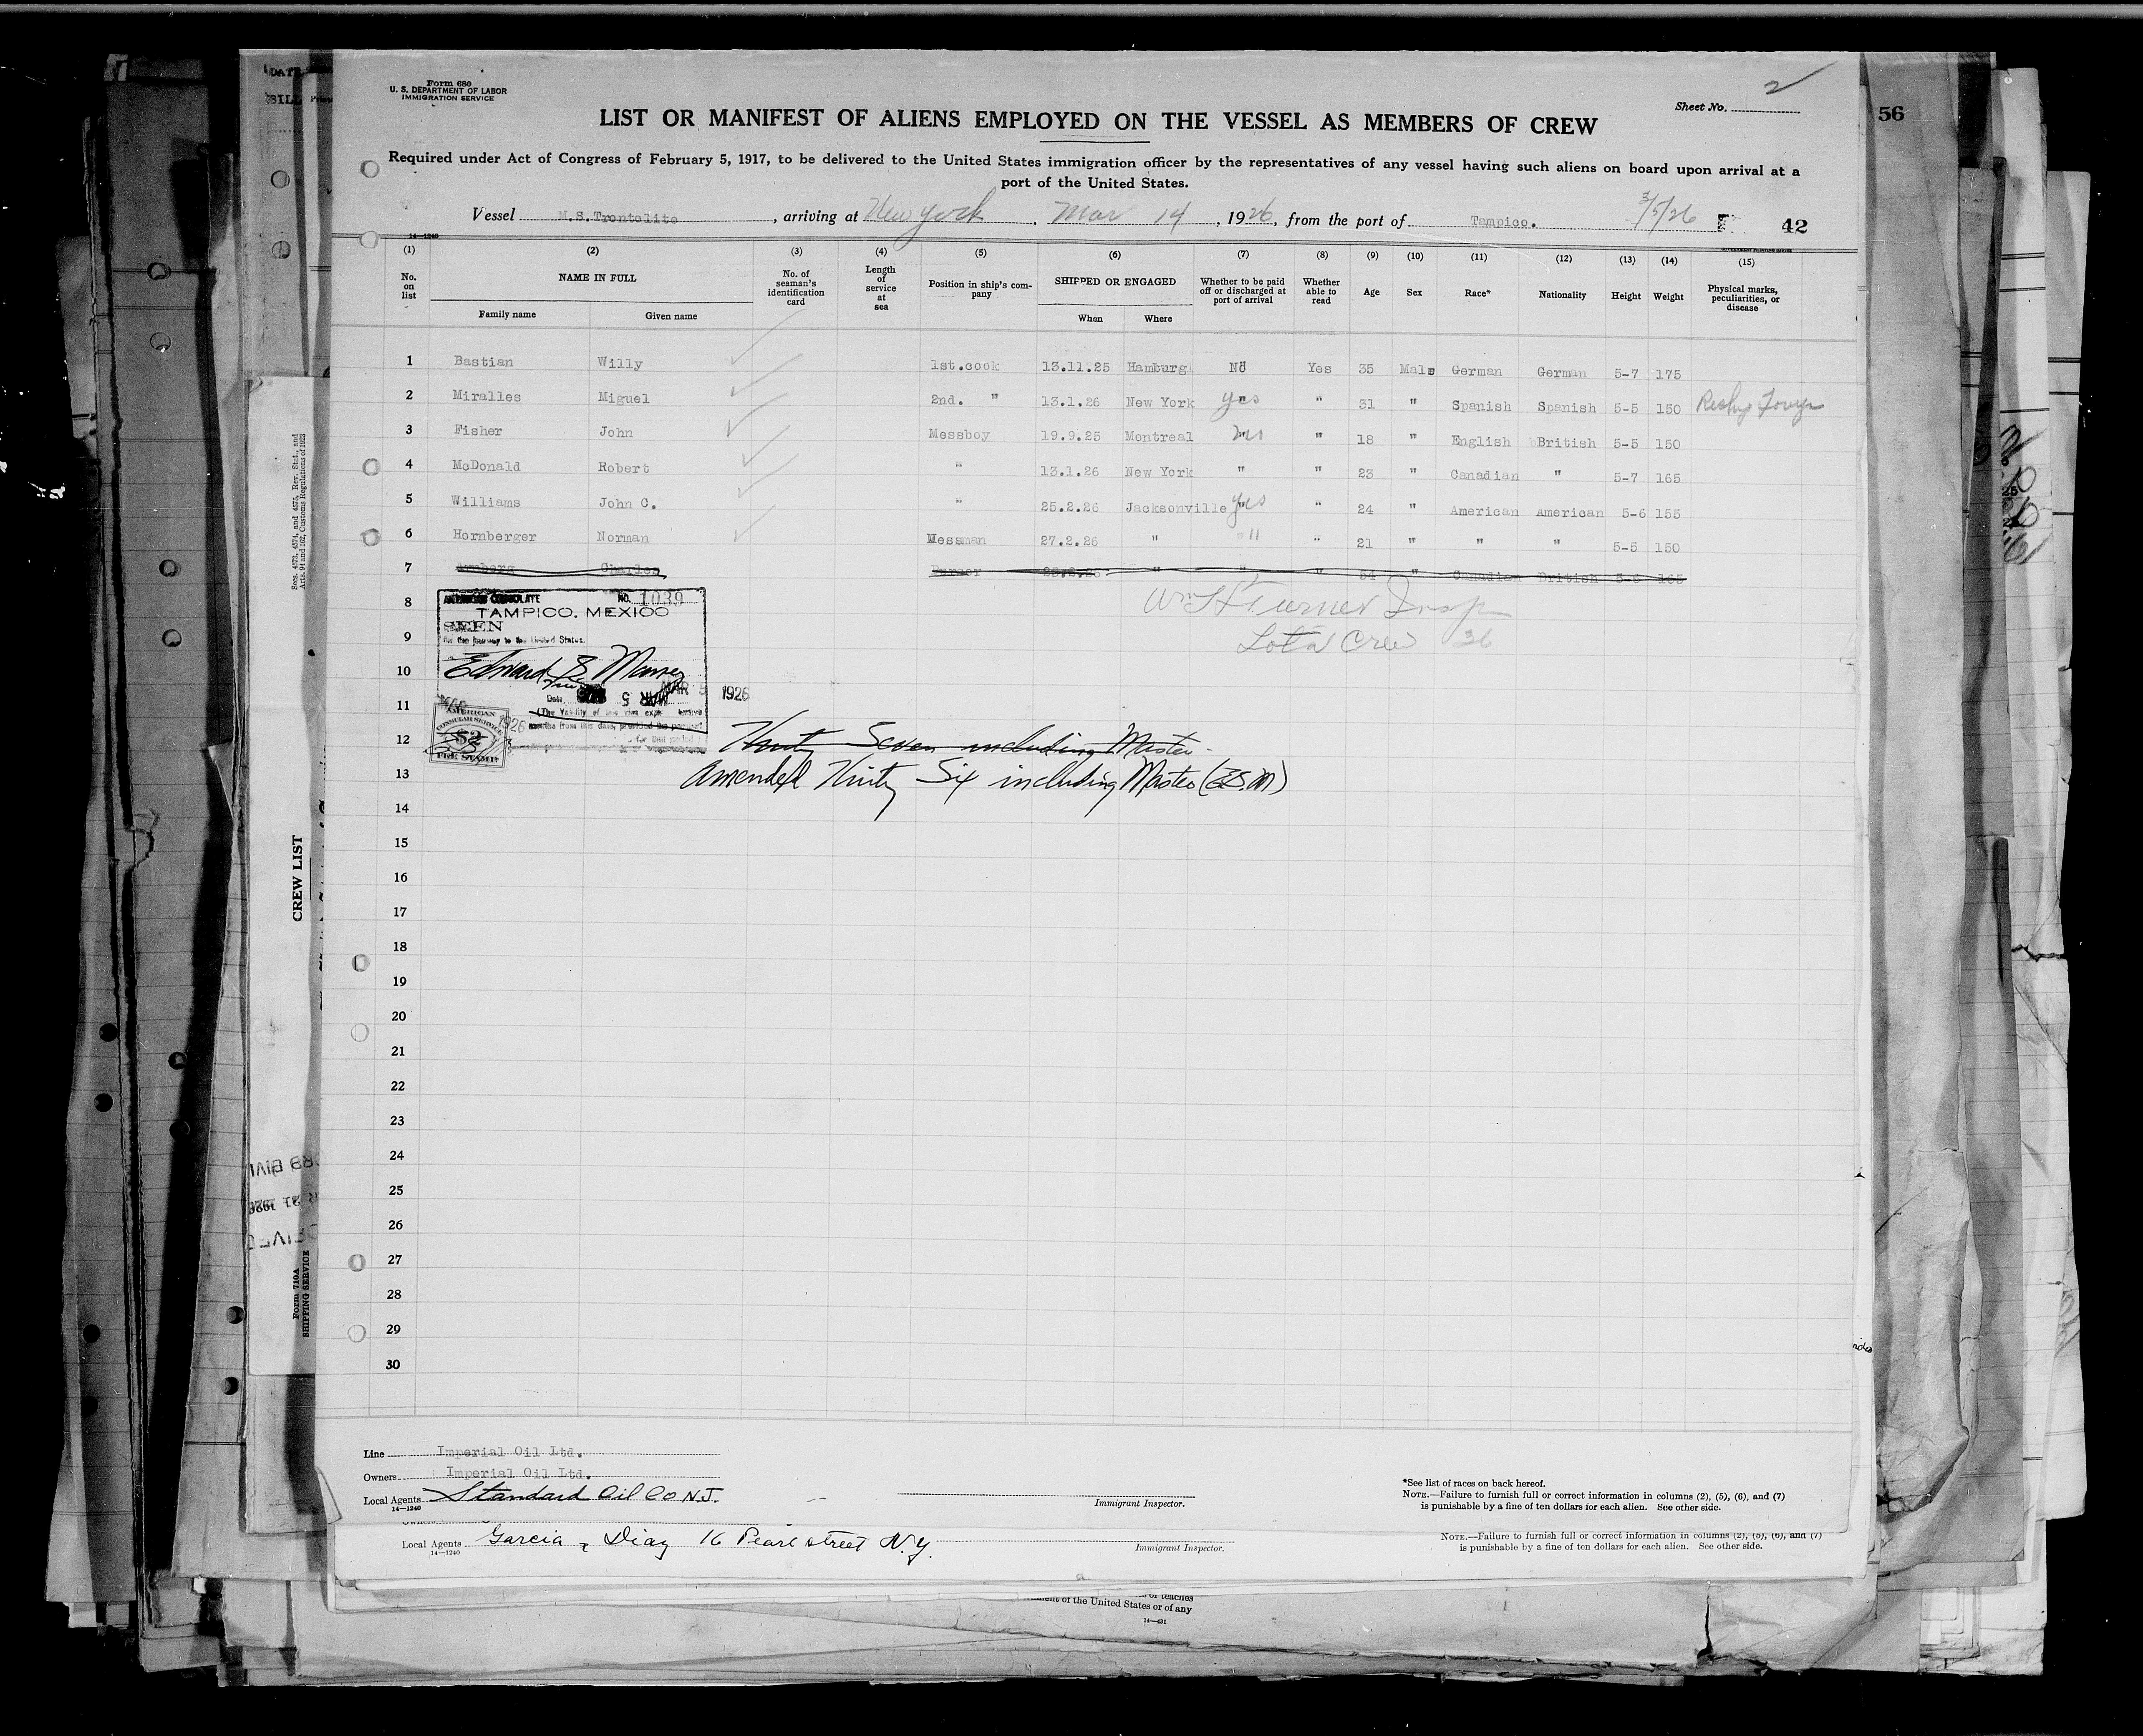 Form 680
U. S. DEPARTMENT OF LABOR
IMMIGRATION SERVICE
Sheet No. 2
56
LIST OR MANIFEST OF ALIENS EMPLOYED ON THE VESSEL AS MEMBERS OF CREW
Required under Act of Congress of February 5, 1917, to be delivered to the United States immigration officer by the representatives of any vessel having such aliens on board upon arrival at a
port of the United States.
Vessel M.S.Trontolite, arriving at New York, Mar 14, 1926, from the port of Tampico. 3/5/26 42
14—1240
(1) (2) (3) (4) (5) (6) (7) (8) (9) (10) (11) (12) (13) (14) (15)
No. on list NAME IN FULL No. of seaman's identification card Length of service at sea Position in ship's company SHIPPED OR ENGAGED Whether to be paid off or discharged at port of arrival Whether able to read Age Sex Race* Nationality Height Weight Physical marks, peculiarities, or disease
Family name Given name When Where
1 Bastian Willy 1st.cook 13.11.25 Hamburg No Yes 35 Male German German 5-7 175
2 Miralles Miguel 2nd. " 13.1.26 New York yes " 31 " Spanish Spanish 5-5 150
3 Fisher John Messboy 19.9.25 Montreal no " 18 " English British 5-5 150
4 McDonald Robert " 13.1.26 New York " " 23 " Canadian " 5-7 165
5 Williams John C. " 25.2.26 Jacksonville yes " 24 " American American 5-6 155
6 Hornberger Norman Messman 27.2.26 " " " 21 " " " 5-5 150
7 Charles " " " " Canadian British
8
9
10
11
12
13
14
15
16
17
18
19
20
21
22
23
24
25
26
27
28
29
30
AMERICAN CONSULATE NO. 1039
TAMPICO, MEXICO
SEEN
For the journey to the United States.
Date MAR 5 1926
AMERICAN
CONSULAR SERVICE
$2
FEE STAMP
Wm H Turner Insp
Total Crew 36
Thirty Seven including Master.
Amended Thirty Six including Master (E.S.M)
Line Imperial Oil Ltd.
Owners Imperial Oil Ltd.
Local Agents Standard Oil Co N.J.
14—1240
Immigrant Inspector.
*See list of races on back hereof.
NOTE.—Failure to furnish full or correct information in columns (2), (5), (6), and (7)
is punishable by a fine of ten dollars for each alien. See other side.
Local Agents Garcia & Diaz 16 Pearl street N.Y.
14—1240
Immigrant Inspector.
NOTE.—Failure to furnish full or correct information in columns (2), (5), (6), and (7)
is punishable by a fine of ten dollars for each alien. See other side.
of the United States or of any
CREW LIST
Form 710A
SHIPPING SERVICE